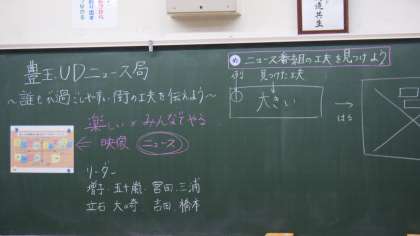 道共生
豊玉UDニュース局
～誰もが過ごしやすい街の工夫を伝えよう～
楽しい×みんなでやる
⇐ 映像 ニュース
リーダー
増子 五十嵐 宮田 三浦
立石 大崎 吉田 橋本
め ニュース番組の工夫を見つけよう
例 見つけた工夫
① 大きい → はる